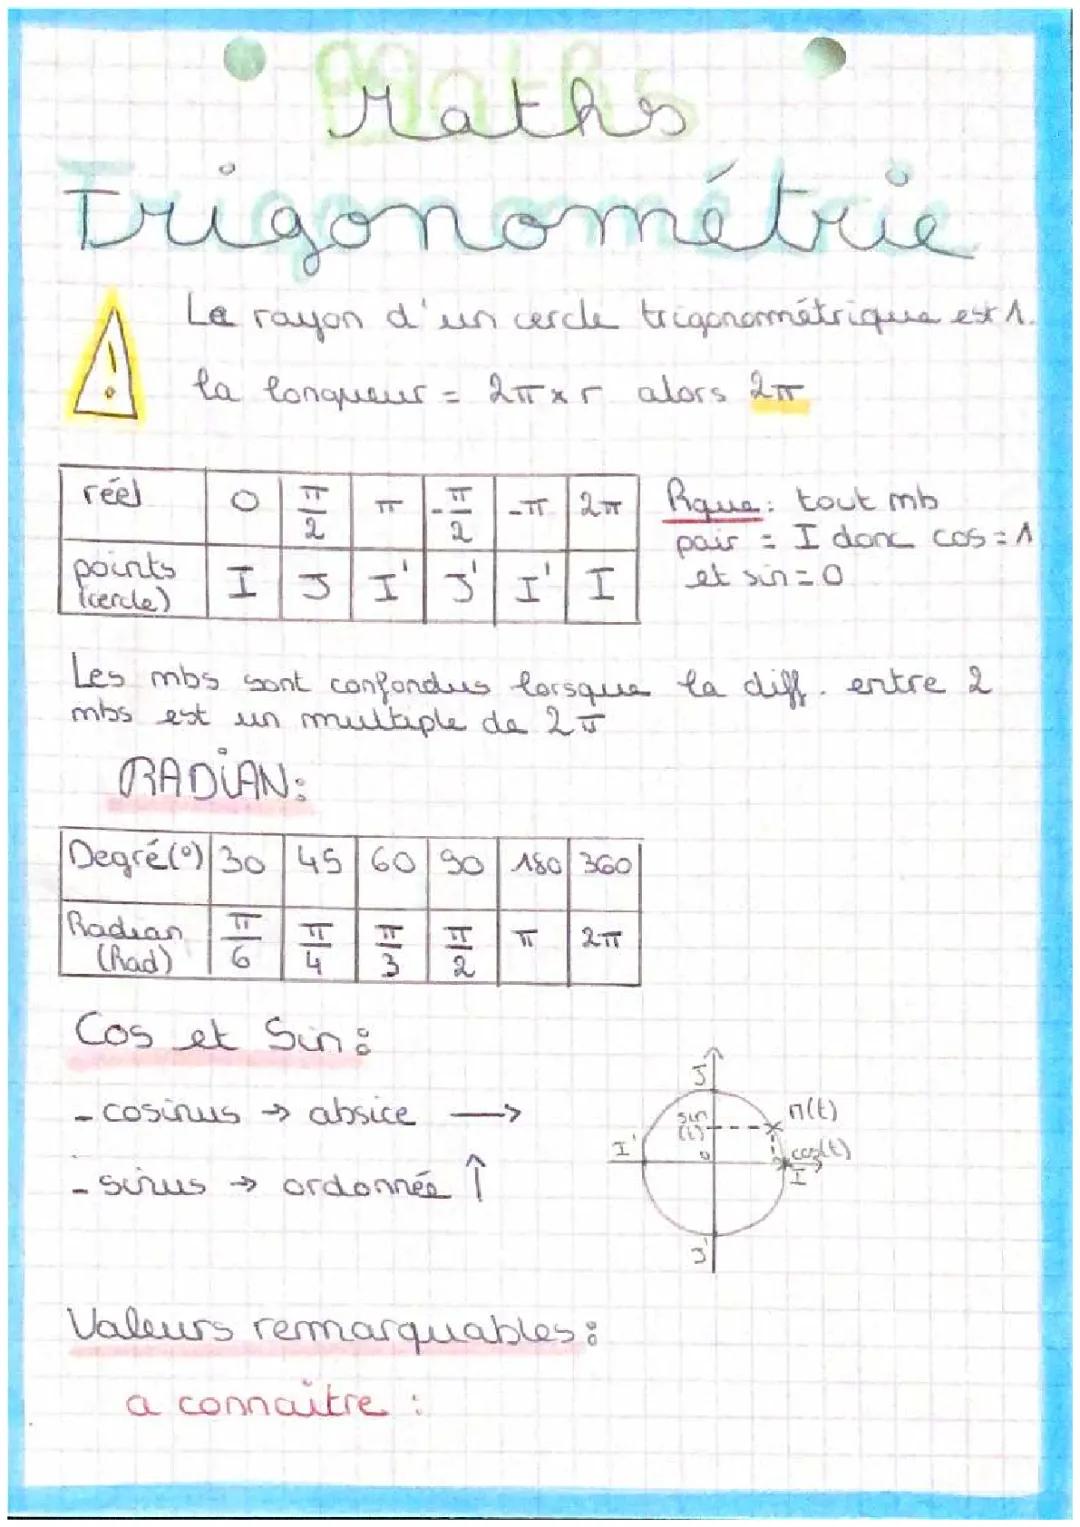 Maths
Trigonométrie
Le rayon d'un cercle trigonométrique est 1.
la longueur = 2π x r alors 2π
réel 0 π/2 π -π/2 -π 2π
points (cercle) I J I' J' I' I
Rque : tout mb
pair = I donc cos = 1
et sin = 0
Les mbs sont confondus lorsque la diff. entre 2
mbs est un multiple de 2π
RADIAN :
Degré (°) 30 45 60 90 180 360
Radian (Rad) π/6 π/4 π/3 π/2 π 2π
Cos et Sin :
- cosinus → absice →
- sinus → ordonnée ↑
J
sin (t)
M(t)
I'
0
cos(t)
I
J'
Valeurs remarquables :
a connaitre :